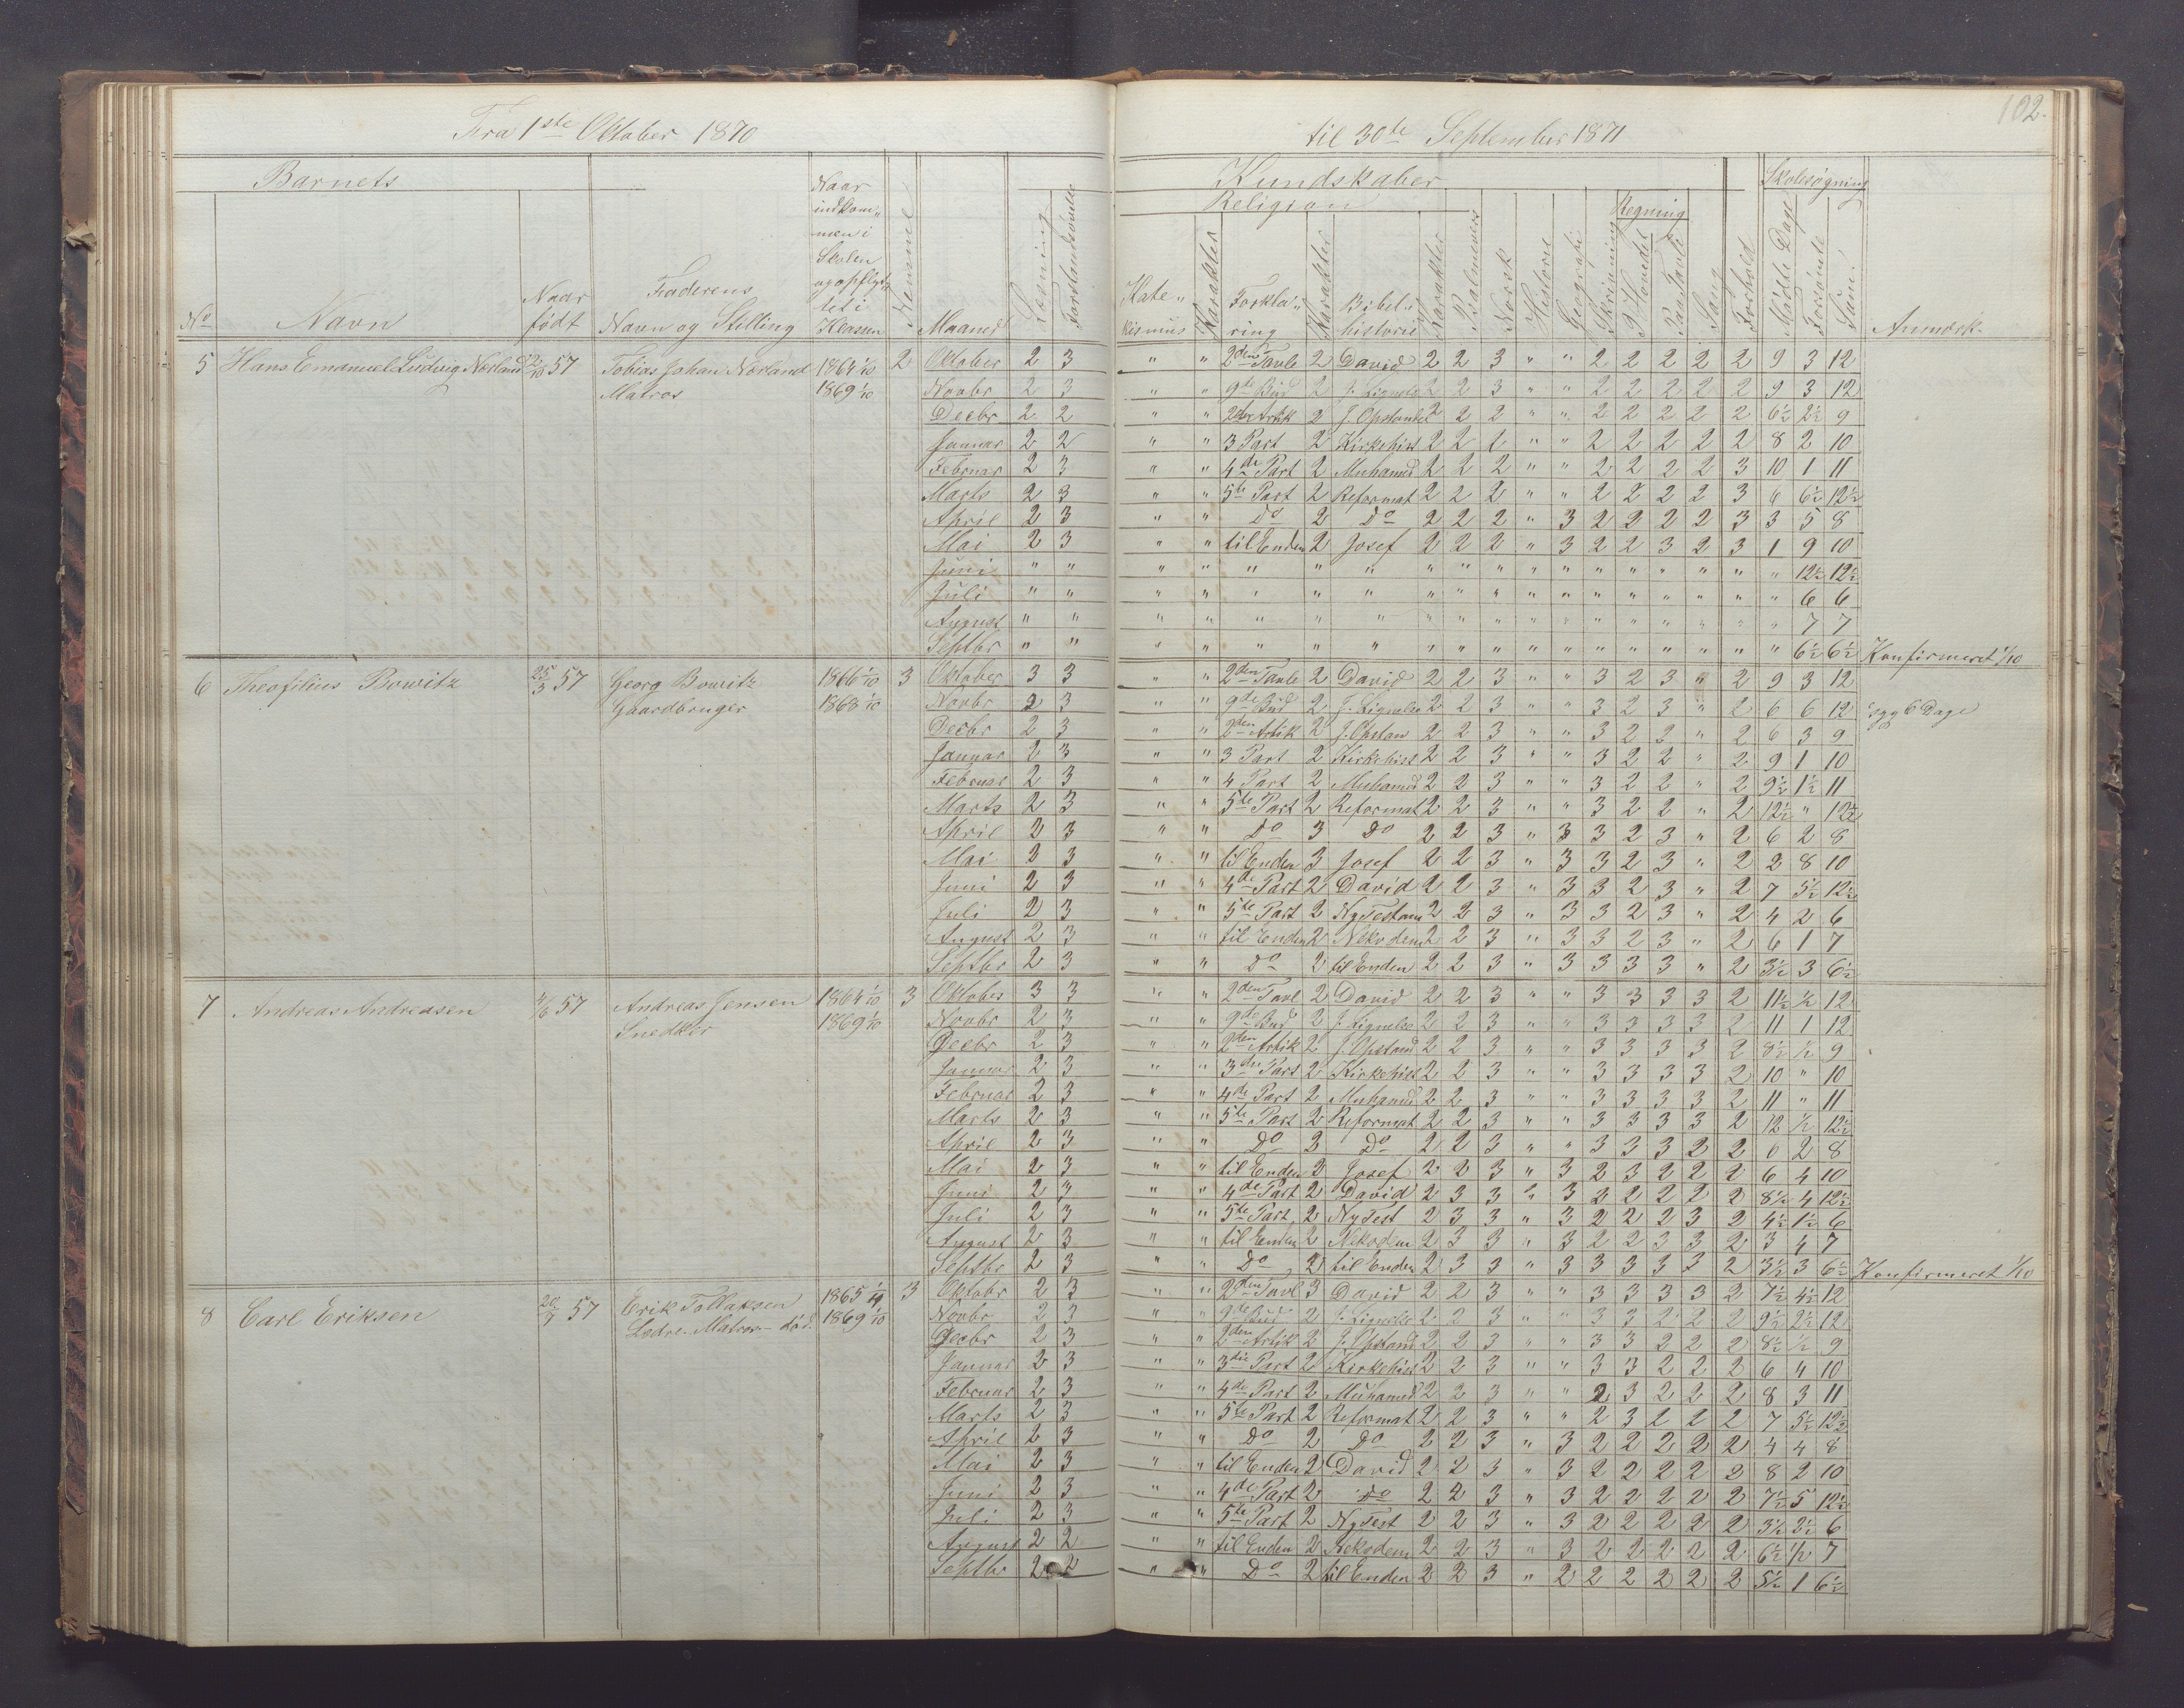 102.
Fra 1ste Oktober 1870 til 30te September 1871
Barnets Kundskaber Skolesøgning
Religion Regning
No Navn Naar født Faderens Navn og Stilling Naar indkommen i Skolen og opflyttet i Klassen Nemme Maaned Læsning Forstandsøvelse Katekismus Karakter Forklaring Karakter Bibelhistorie Karakter Salmevers Norsk Historie Geografi Skrivning P. Hovedet Paa Tavle Sang Forhold Mødte Dage Forsømte Sum. Anmærk.
5 Hans Emanuel Ludvig Nærland 57 Tobias Johan Nærland 1864 1/10 2 Oktober 2 3 " " 2den Tavle 2 David 2 2 3 " " 2 2 2 2 2 9 3 12
Matros 1869 1/10 Novbr 2 3 " " 9de Bud 2 J. Lignelse 2 2 3 " " 2 2 2 2 2 9 3 12
Decbr 2 2 " " 2den Artik 2 J. Opstandel 2 2 2 " " 2 2 2 2 2 6½ 2½ 9
Januar 2 2 " " 3 Part 2 Kirkehist 2 2 1 " " 2 2 2 2 2 8 2 10
Februar 2 3 " " 4de Part 2 Muhamed 2 2 2 " " 2 2 2 2 3 10 1 11
Marts 2 3 " " 5te Part 2 Reformat 2 2 2 " " 2 2 2 2 3 6 6½ 12½
April 2 3 " " Do 2 Do 2 2 2 " 3 2 2 2 2 3 3 5 8
Mai 2 3 " " til Enden 2 Josef 2 2 2 " 3 2 2 3 2 3 1 9 10
Juni " " " " " " " " " " " " " " " " " " 12½ 12½
Juli " " " " " " " " " " " " " " " " " " 6 6
August " " " " " " " " " " " " " " " " " " 7 7
Septbr " " " " " " " " " " " " " " " " " " 6½ 6½ Konfirmeret 1/10
6 Theofilius Bowitz 25/3 57 Georg Bowitz 1866 1/10 3 Oktober 3 3 " " 2den Tavle 2 David 2 2 3 " " 3 2 3 " 2 9 3 12
Gaardbruger 1868 1/10 Novbr 2 3 " " 9de Bud 2 J. Lignelse 2 2 3 " " 3 2 3 " 2 6 6 12 syg 6 Dage
Decbr 2 3 " " 2den Artik 2 J. Opstan 2 2 3 " " 3 2 2 " 2 6 3 9
Januar 2 3 " " 3 Part 2 Kirkehist 2 2 3 " " 3 2 2 " 2 9 1 10
Februar 2 3 " " 4 Part 2 Muhamed 2 2 3 " " 3 2 2 " 2 9½ 1½ 11
Marts 2 3 " " 5te Part 2 Reformat 2 2 3 " " 3 2 2 " 2 12½ " 12½
April 2 3 " " Do 3 Do 2 2 3 " 3 3 2 3 " 2 6 2 8
Mai 2 3 " " til Enden 3 Josef 2 2 3 " 3 3 2 3 " 2 2 8 10
Juni 2 3 " " 4de Part 2 David 2 2 3 " 3 3 2 3 " 2 7 5½ 12½
Juli 2 3 " " 5te Part 2 Ny Testam 2 2 3 " 3 3 2 3 " 2 4 2 6
August 2 3 " " til Enden 2 Nekodem 2 2 3 " 3 3 2 3 " 2 6 1 7
Septbr 2 3 " " Do 2 til Enden 2 2 3 " 3 3 3 3 " 2 3½ 3 6½
7 Andreas Andreasen 57 Andreas Jensen 1864 1/10 3 Oktober 3 3 " " 2den Tavl 2 David 2 2 3 " " 3 3 3 3 2 11½ ½ 12
Snedker 1869 1/10 Novbr 2 3 " " 9de Bud 2 J. Lignelse 2 2 3 " " 3 3 3 3 2 11 1 12
Decbr 2 3 " " 2den Artik 2 J. Opstand 2 2 3 " " 3 3 3 3 2 8½ ½ 9
Januar 2 3 " " 3die Part 2 Kirkehist 2 2 3 " " 3 3 3 3 2 10 " 10
Februar 2 3 " " 4de Part 2 Muhamed 2 2 3 " " 3 3 3 3 2 11 " 11
Marts 2 3 " " 5te Part 2 Reformat 2 2 3 " " 3 3 3 3 2 12 ½ 12½
April 2 3 " " Do 2 Do 2 2 3 " " 3 3 3 2 2 6 2 8
Mai 2 3 " " til Enden 2 Josef 2 2 3 " 3 2 3 2 2 2 6 4 10
Juni 2 3 " " 4de Part 2 David 2 3 3 " 3 3 2 2 2 2 8½ 4 12½
Juli 2 3 " " 5te Part 2 Ny Test 2 3 3 " 3 2 2 2 3 2 4½ 1½ 6
August 2 3 " " til Enden 2 Nekodem 2 3 3 " 3 2 2 3 3 2 3 4 7
Septbr 2 3 " " Do 2 til Enden 2 3 3 " 3 3 3 3 3 2 3½ 3 6½ Konfirmeret 1/10
8 Carl Eriksen 57 Erik Tollaksen 1865 3 Oktobr 2 3 " " 2den Tavl 3 David 2 2 3 " " 3 3 3 3 2 7½ 4½ 12
Lodre. Matros – død. 1869 1/10 Novbr 2 3 " " 9de Bud 2 J. Lignelse 2 2 3 " " 3 3 2 2 2 9½ 2½ 12
Decbr 2 3 " " 2den Artik 2 J. Opstand 2 2 3 " " 3 3 2 2 2 8½ ½ 9
Januar 2 3 " " 3die Part 2 Kirkehist 2 2 3 " " 3 3 2 2 2 6 4 10
Februar 2 3 " " 4de Part 2 Muhamed 2 2 3 " " 2 3 2 2 2 8 3 11
Marts 2 3 " " 5te Part 2 Reformat 2 2 3 " " 2 3 2 2 2 7 5½ 12½
April 2 3 " " Do 2 Do 2 2 3 " 3 2 2 2 2 2 4 4 8
Mai 2 3 " " til Enden 2 David 2 2 3 " 3 2 2 2 2 2 8 2 10
Juni 2 3 " " 4de Part 2 Do 2 2 3 " 3 2 2 2 2 2 7½ 5 12½
Juli 2 3 " " 5te Part 2 Ny Test 2 2 3 " 3 2 2 2 2 2 3½ 2½ 6
August 2 2 " " til Enden 2 Nekodem 2 2 3 " 3 2 2 2 2 2 6½ ½ 7
Septbr 2 2 " " Do 2 til Enden 2 2 3 " 2 2 2 2 2 2 5½ 1 6½